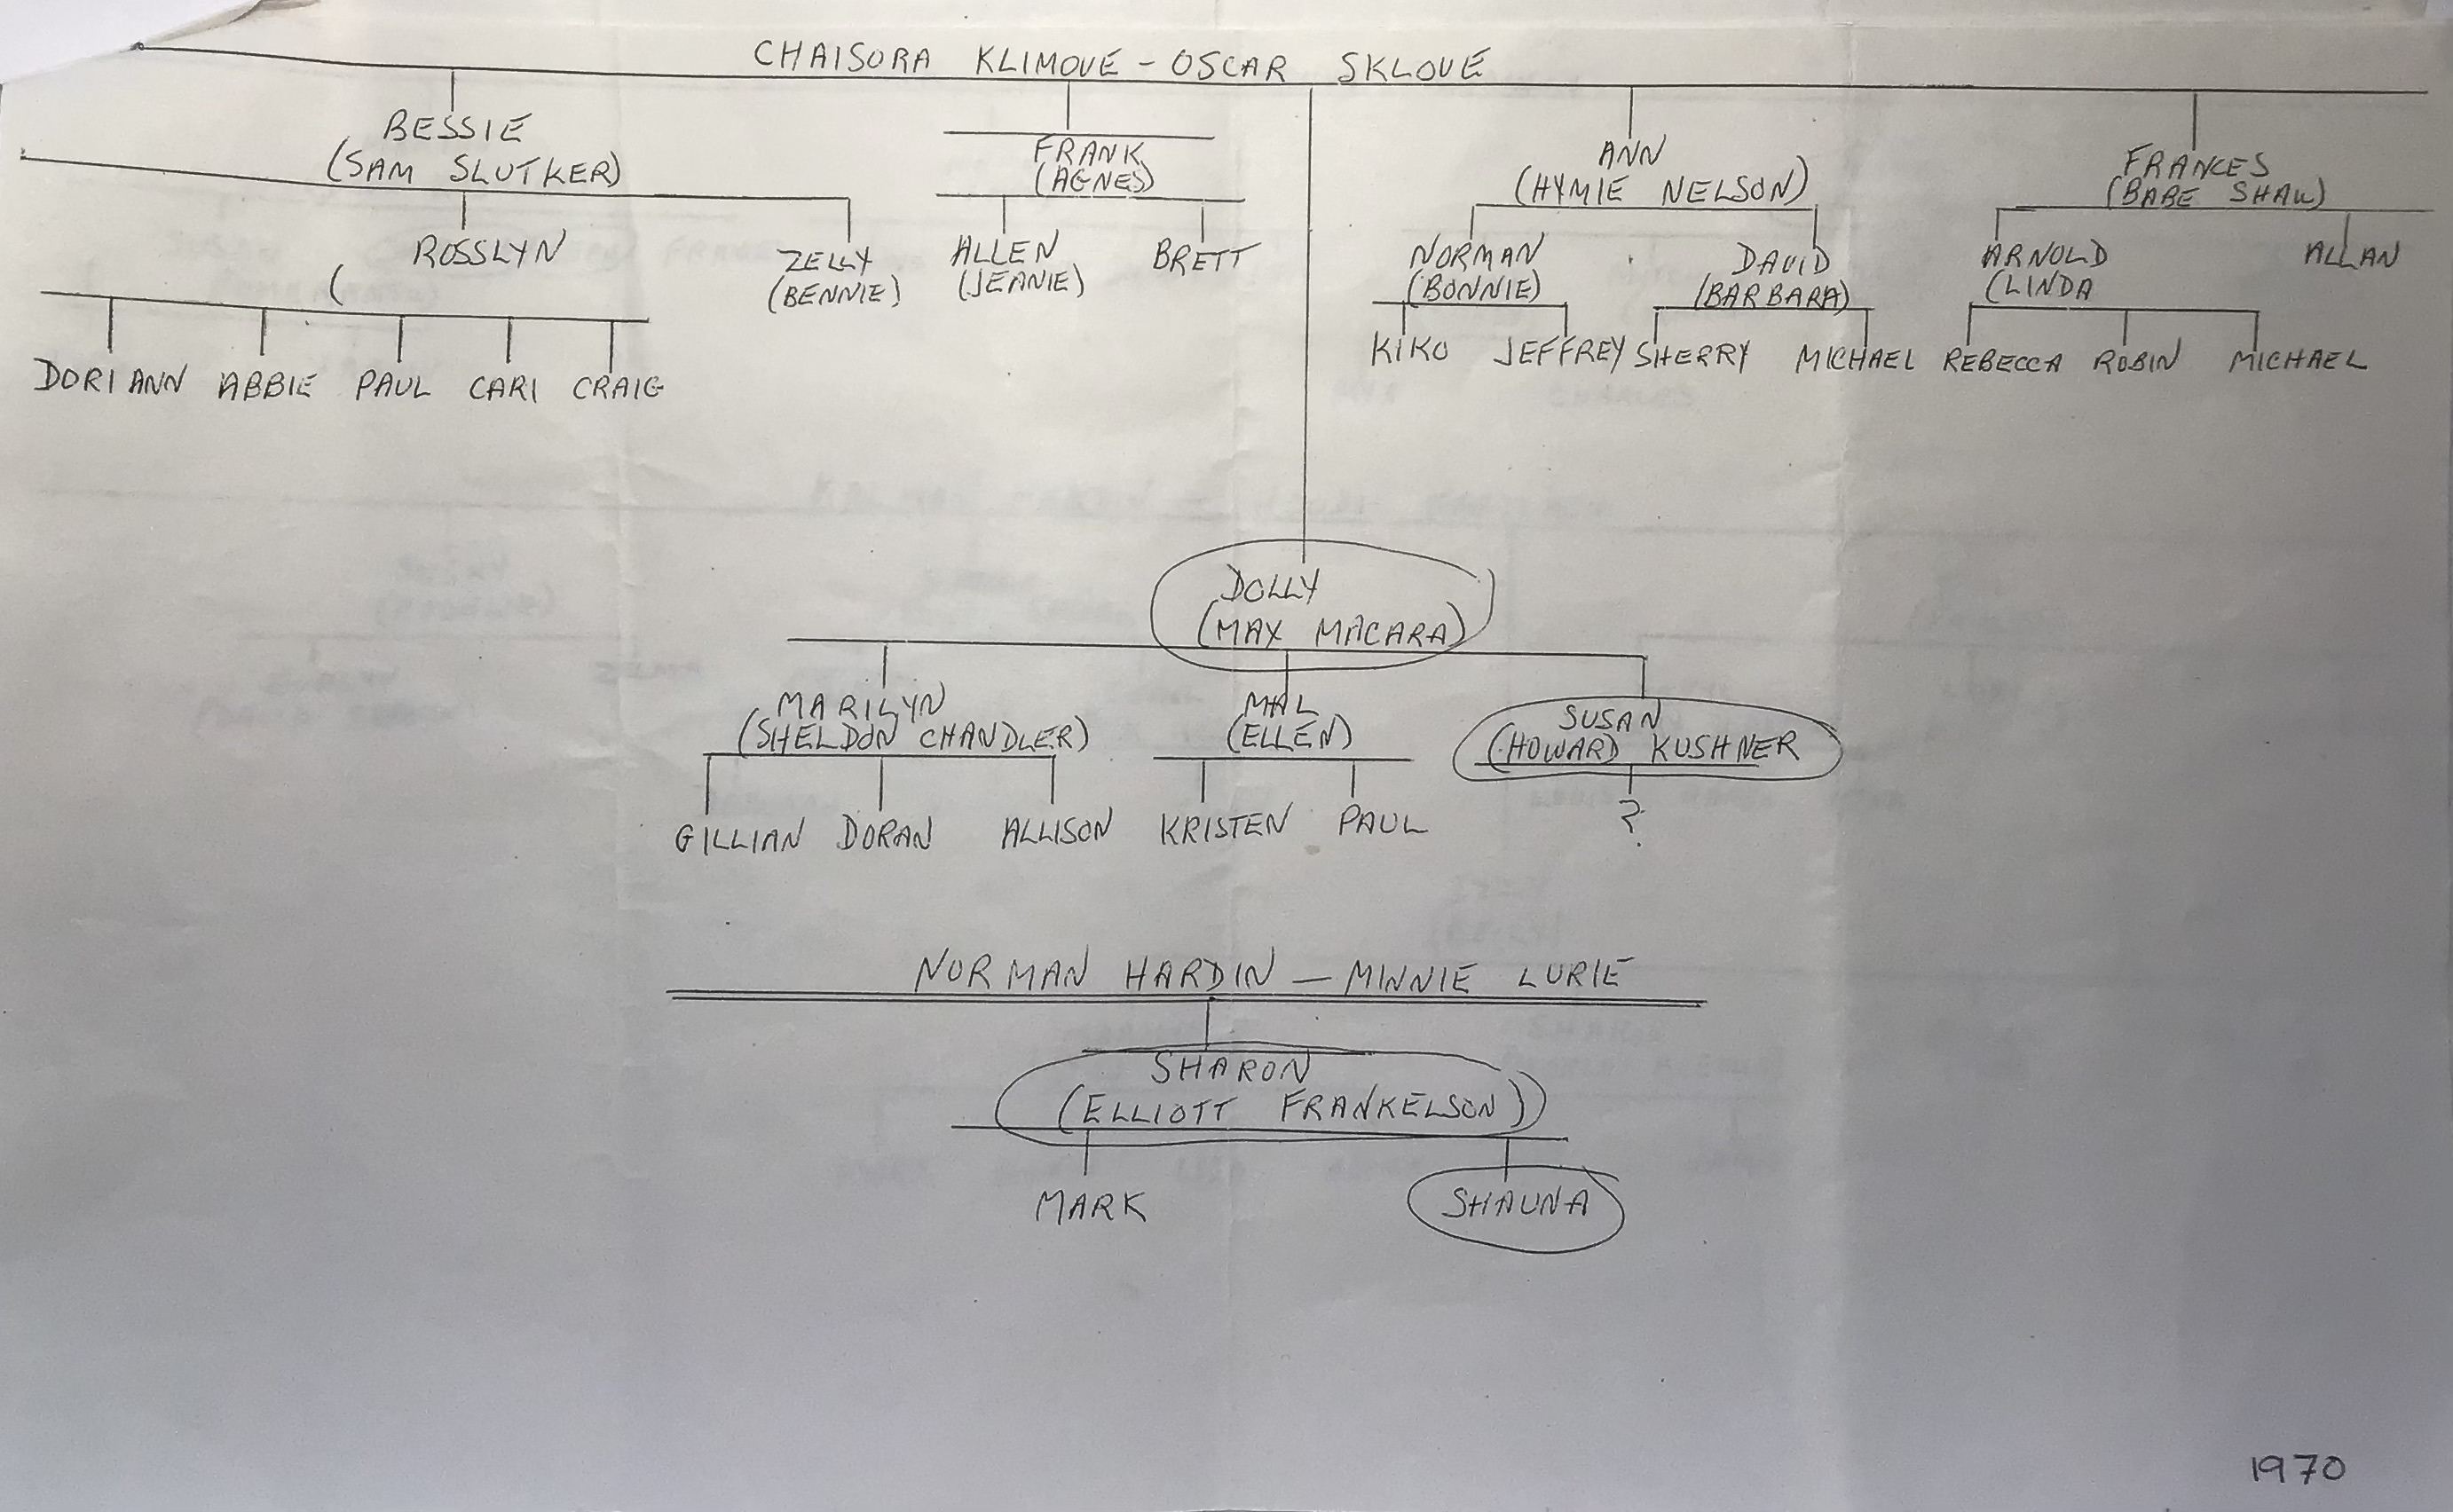 CHAISORA KLIMOVE - OSCAR SKLOVE
BESSIE
(SAM SLUTKER)
FRANK
(AGNES)
ANN
(HYMIE NELSON)
FRANCES
(BABE SHAW)
ROSSLYN
(
ZELLY
(BENNIE)
ALLEN
(JEANIE)
BRETT
NORMAN
(BONNIE)
DAVID
(BARBARA)
ARNOLD
(LINDA
ALLAN
DORI ANN ABBIE PAUL CARI CRAIG
KIKO JEFFREY SHERRY MICHAEL REBECCA ROBIN MICHAEL
DOLLY
(MAX MACARA)
MARILYN
(SHELDON CHANDLER)
MAL
(ELLEN)
SUSAN
(HOWARD KUSHNER
GILLIAN DORAN ALLISON KRISTEN PAUL ?
NORMAN HARDIN — MINNIE LURIE
SHARON
(ELLIOTT FRANKELSON)
MARK SHAUNA
1970